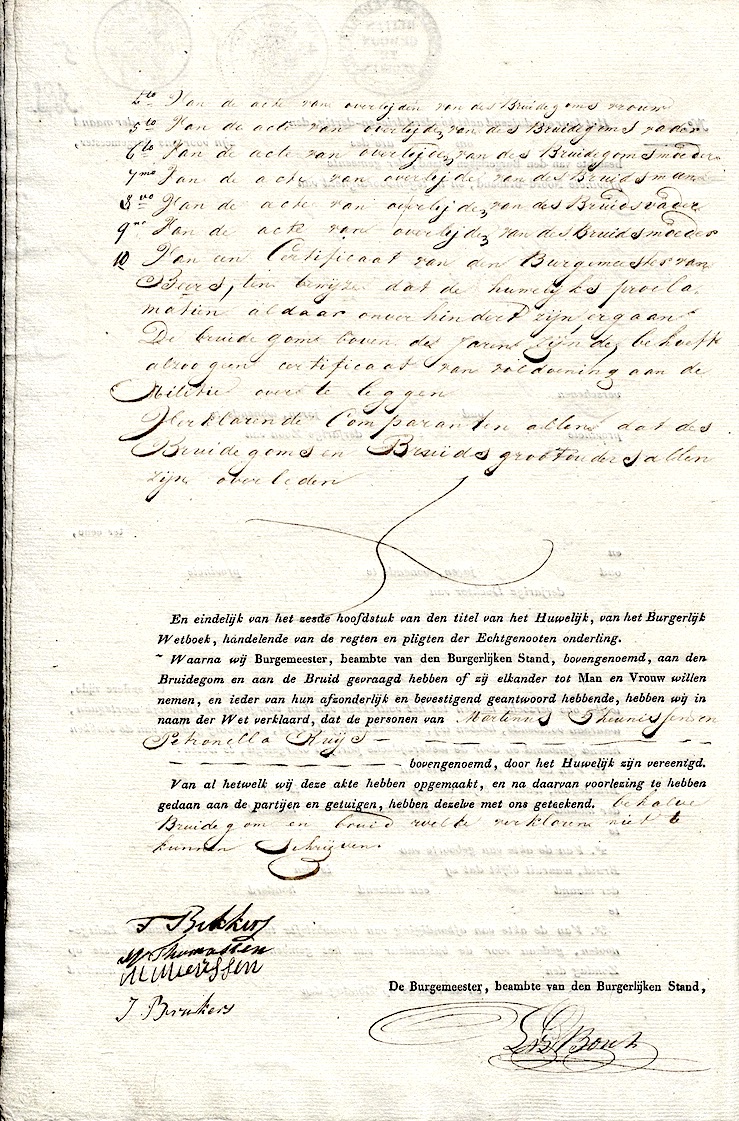 Van de acte van overlijden van des Bruidegoms vrouw
5to Van de acte van overlijden van des Bruidegoms vader
6to Van de acte van overlijden van des Bruidegoms moeder
7mo Van de acte van overlijden van des Bruids man
8vo Van de acte van overlijden van des Bruids vader
9no Van de acte van overlijden van des Bruids moeder
10 Van een Certificaat van den Burgemeester van
Beers, ten bewijze dat de huwelijks procla-
matien aldaar onverhinderd zijn ergaan
De bruidegoms boven des jaren zijnde, behoeft
alzoo geen certificaat van voldoening aan de
Militie over te leggen
Verklarende Comparanten allens dat des
Bruidegoms en Bruids grootouders allen
zijn overleden
En eindelijk van het zesde hoofdstuk van den titel van het Huwelijk, van het Burgerlijk
Wetboek, handelende van de regten en pligten der Echtgenooten onderling.
Waarna wij Burgemeester, beambte van den Burgerlijken Stand, bovengenoemd, aan den
Bruidegom en aan de Bruid gevraagd hebben of zij elkander tot Man en Vrouw willen
nemen, en ieder van hun afzonderlijk en bevestigend geantwoord hebbende, hebben wij in
naam der Wet verklaard, dat de personen van Martinus Theunissen en
Petronella Kuijs
bovengenoemd, door het Huwelijk zijn vereenigd.
Van al hetwelk wij deze akte hebben opgemaakt, en na daarvan voorlezing te hebben
gedaan aan de partijen en getuigen, hebben dezelve met ons geteekend. behalve
Bruidegom en bruid welke verklaren niet te
kunnen Schrijven.
T Bekkers
M Thomassen
M Meerssen
J. Beukers
De Burgemeester, beambte van den Burgerlijken Stand,